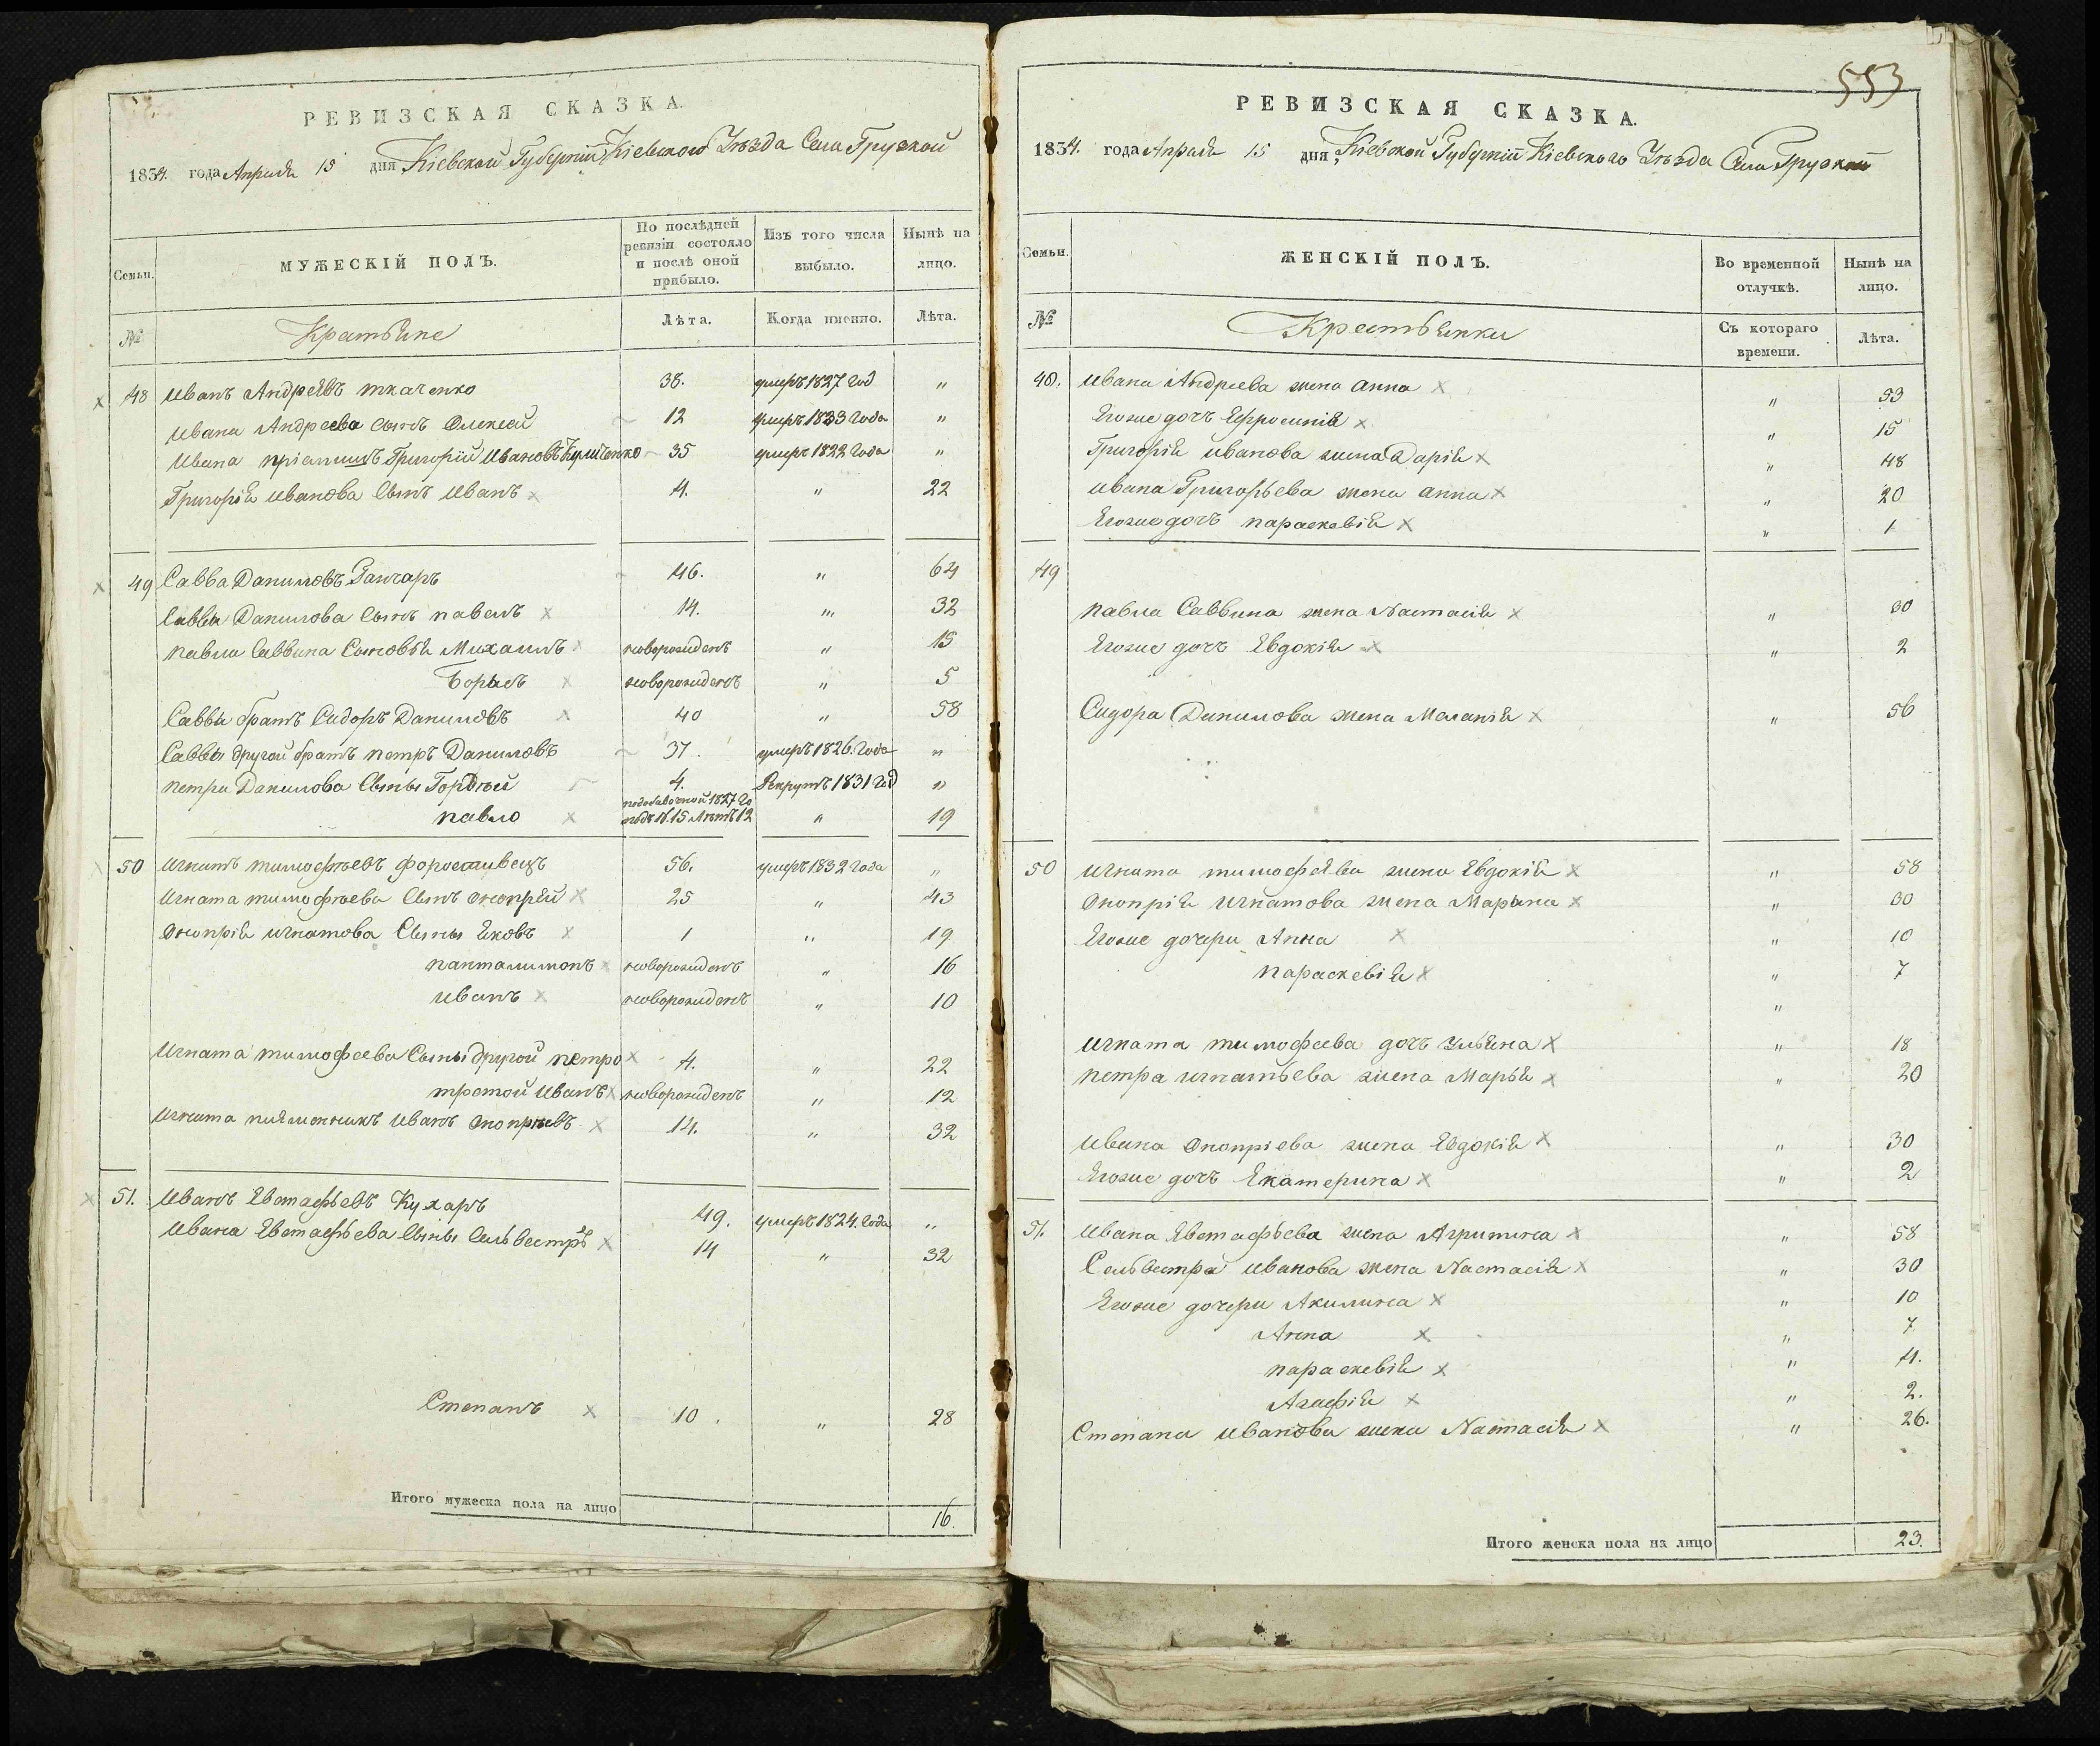 РЕВИЗСКАЯ СКАЗКА.
1834. года Апреля 15 дня Кіевской Губерніи Кіевского Уезда Села Грузкой
Семьи.
МУЖЕСКІЙ ПОЛЪ.
По послѣдней ревизіи состояло и послѣ оной прибыло.
Изъ того числа выбыло.
Нынѣ на лицо.
№
Крестьяне
Лѣта.
Когда именно.
Лѣта.
48 Иванъ Андреявъ ткаченко 38. умеръ 1827 Год "
Ивана Андреева Сынъ Олексей 12 умеръ 1833 Года "
Ивана Григорій Ивановъ 35 умеръ 1822 Года "
Григорія Иванова Сынъ Иванъ 4. " 22
49 Савва Даниловъ Ганчаръ 46. " 64
Саввы Данилова Сынъ павелъ 14. " 32
павла Саввина Сыновья Михаилъ новорожденъ " 15
Борисъ новорожденъ " 5
Саввы братъ Сидоръ Даниловъ 40 " 58
Саввы другой братъ петръ Даниловъ 37. умеръ 1826. Года "
петра Данилова Сыны Гордѣй 4. Рекрутъ 1831 Год "
павло 1827 15 Лѣтъ 12 " 19
50 Игнатъ тимофѣевъ форостивецъ 56. умеръ 1832 Года "
Игната тимофѣева Сынъ онопрѣй 25 " 43
Онопрія игнатова Сыны Яковъ 1 " 19
панталимонъ новорожденъ " 16
Иванъ новорожденъ " 10
Игната тимофеева Сыны другой петро 4. " 22
третой Иванъ новорожденъ " 12
Игната племенникъ Иванъ онопрѣевъ 14. " 32
51. Иванъ Евтафьевъ Кухаръ 49. умеръ 1824. Года "
Ивана Евтафьева Сыны Сельвестръ 14 " 32
Степанъ 10. " 28
Итого мужеска пола на лицо 16.
553
РЕВИЗСКАЯ СКАЗКА.
1834. года Апреля 15 дня, Кіевской Губерніи Кіевского Уезда Села Грузкой
Семьи.
ЖЕНСКІЙ ПОЛЪ.
Во временной отлучкѣ.
Нынѣ на лицо.
№
Крестьянки
Съ котораго времени.
Лѣта.
48. Ивана Андреева жена анна " 53
Егоже дочъ Ефросинія " 15
Григорія иванова жена Дарія " 48
Ивана Григорьева жена анна " 20
Егоже дочъ параскевія " 1
49
павла Саввина жена Настасія " 30
Егоже дочъ Евдокія " 2
Сидора Данилова жена Меланія " 56
50 Игната тимофеява жена Евдокія " 58
Онопрія Игнатова жена Марина " 30
Егоже дочери Анна " 10
параскевія " 7
"
Игната тимофеева дочъ ульяна " 18
петра игнатьева жена Марья " 20
Ивана Онопріева жена Евдокія " 30
Егоже дочъ Екатерина " 2
51. Ивана Явтафьева жена Агрипина " 58
Сельвестра Иванова жена Настасія " 30
Егоже дочери Акилина " 10
Анна " 7
параскевія " 4.
Агафія " 2.
Степана иванова жена Настасія " 26.
Итого женска пола на лицо 23.